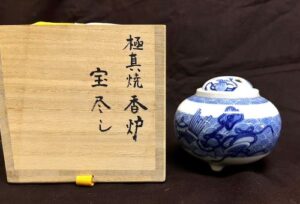 極真焼 香炉
宝尽し